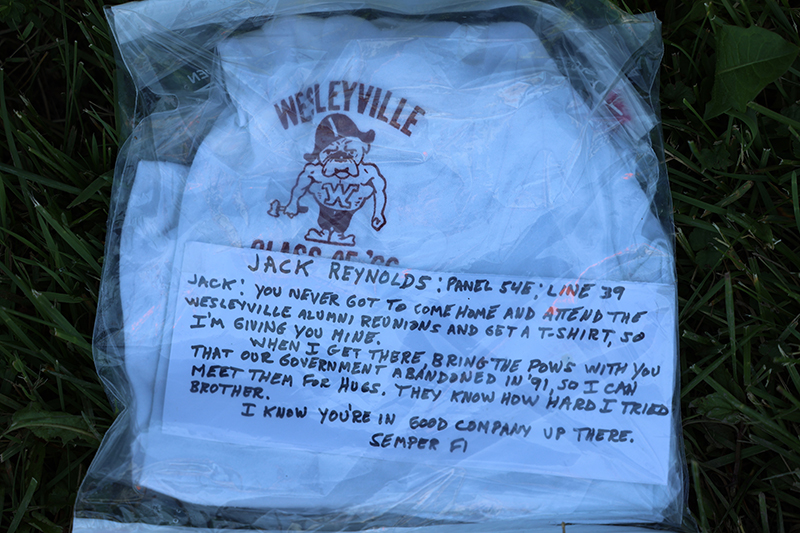 WESLEYVILLE
W
CLASS OF '
JACK REYNOLDS: PANEL 54E; LINE 39
JACK: YOU NEVER GOT TO COME HOME AND ATTEND THE
WESLEYVILLE ALUMNI REUNIONS AND GET A T-SHIRT, SO
I'M GIVING YOU MINE.
WHEN I GET THERE BRING THE POWS WITH YOU
THAT OUR GOVERNMENT ABANDONED IN '91, SO I CAN
MEET THEM FOR HUGS. THEY KNOW HOW HARD I TRIED
BROTHER.
I KNOW YOU'RE IN GOOD COMPANY UP THERE.
SEMPER FI